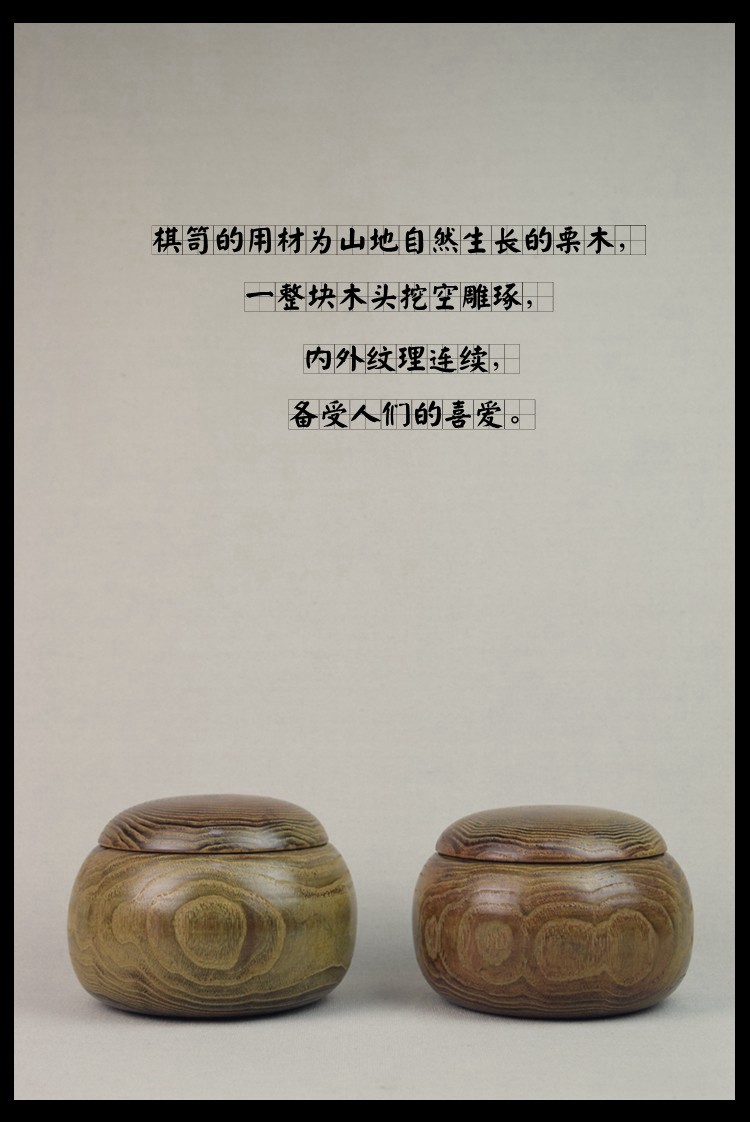 棋笥的用材为山地自然生长的栗木，
一整块木头挖空雕琢，
内外纹理连续，
备受人们的喜爱。